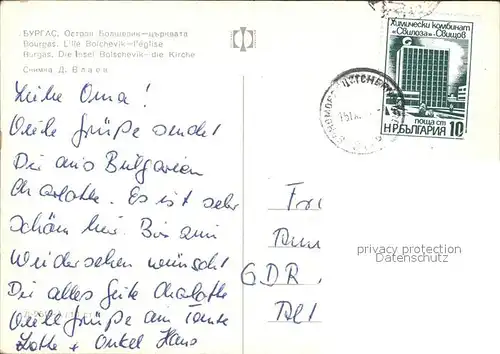 БУРГАС. Остров Болшевик—църквата
Bourgas. L'île Bolchevik—l'église
Burgas. Die Insel Bolschevik—die Kirche
Снимка Д. Влаев
Liebe Oma!
Viele Grüße sendet
Dir aus Bulgarien
Charlotte. Es ist sehr
schön hier. Bis zum
Wiedersehen wünscht
Dir alles Gute Charlotte
Viele Grüße an Tante
Lotte + Onkel Hans
Химически комбинат
"Свилоза"-Свищов
поща ст
НР БЪЛГАРИЯ 10
GDR
privacy protection
Datenschutz